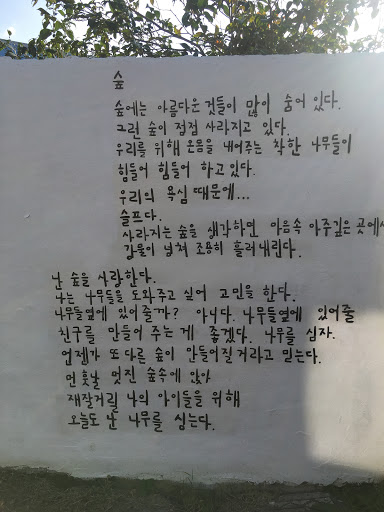 숲
숲에는 아름다운 것들이 많이 숨어 있다.
그런 숲이 점점 사라지고 있다.
우리를 위해 온몸을 내어주는 착한 나무들이
힘들어 힘들어 하고 있다.
우리의 욕심 때문에...
슬프다.
사라지는 숲을 생각하면 마음속 아주깊은 곳에서
강물이 넘쳐 조용히 흘러내린다.
난 숲을 사랑한다.
나는 나무들을 도와주고 싶어 고민을 한다.
나무들옆에 있어줄까? 아니다. 나무들옆에 있어줄
친구를 만들어 주는 게 좋겠다. 나무를 심자.
언젠가 또 다른 숲이 만들어질거라고 믿는다.
먼 훗날 멋진 숲속에 앉아
재잘거릴 나의 아이들을 위해
오늘도 난 나무를 심는다.